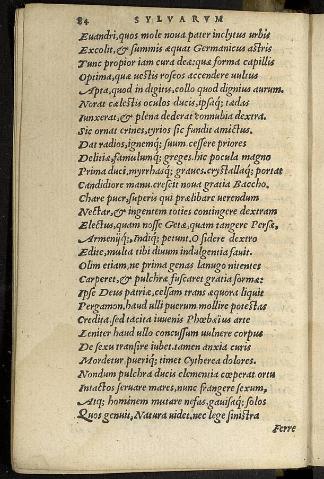 84 SYLVARVM
Euandri, quos mole noua pater inclytus urbis
Excolit, & summis æquat Germanicus astris
Tunc propior iam cura deæ: quæ forma capillis
Optima, quæ uestis roseos accendere uultus
Apta, quod in digitis, collo quod dignius aurum.
Norat cælestis oculos ducis, ipsaq; tædas
Iunxerat, & plena dederat connubia dextra.
Sic ornat crines, tyrios sic fundit amictus.
Dat radios, ignemq; suum. cessere priores
Delitiæ, famulumq; greges. hic pocula magno
Prima duci, myrrhasq; graues, crystallaq; portat
Candidiore manu. crescit noua gratia Baccho.
Chare puer, superis qui prælibare uerendum
Nectar, & ingentem toties contingere dextram
Electus, quam nosse Getæ, quam tangere Persæ,
Armenijq;, Indiq; petunt. O sidere dextro
Edite, multa tibi diuum indulgentia fauit.
Olim etiam, ne prima genas lanugo nitentes
Carperet, & pulchræ fuscaret gratia formæ:
Ipse Deus patriæ, celsam trans æquora liquit
Pergamon. haud ulli puerum mollire potestas
Credita, sed tacita iuuenis Phœbeius arte
Leniter haud ullo concussum uulnere corpus
De sexu transire iubet. tamen anxia curis
Mordetur, pueriq; timet Cytherea dolores.
Nondum pulchra ducis clementia cœperat ortu
Intactos seruare mares, nunc frangere sexum,
Atq; hominem mutare nefas, gauisaq; solos
Quos genuit, Natura uidet, nec lege sinistra
Ferre